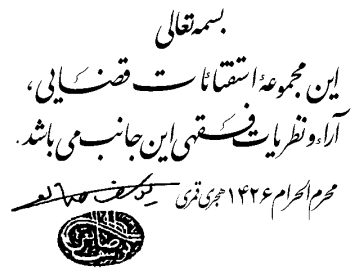 بسمه تعالی
این مجموعهٔ استفتائات قضایی،
آراء و نظریات فقهی این جانب می باشد.
محرم الحرام ۱۴۲۶ هجری قمری